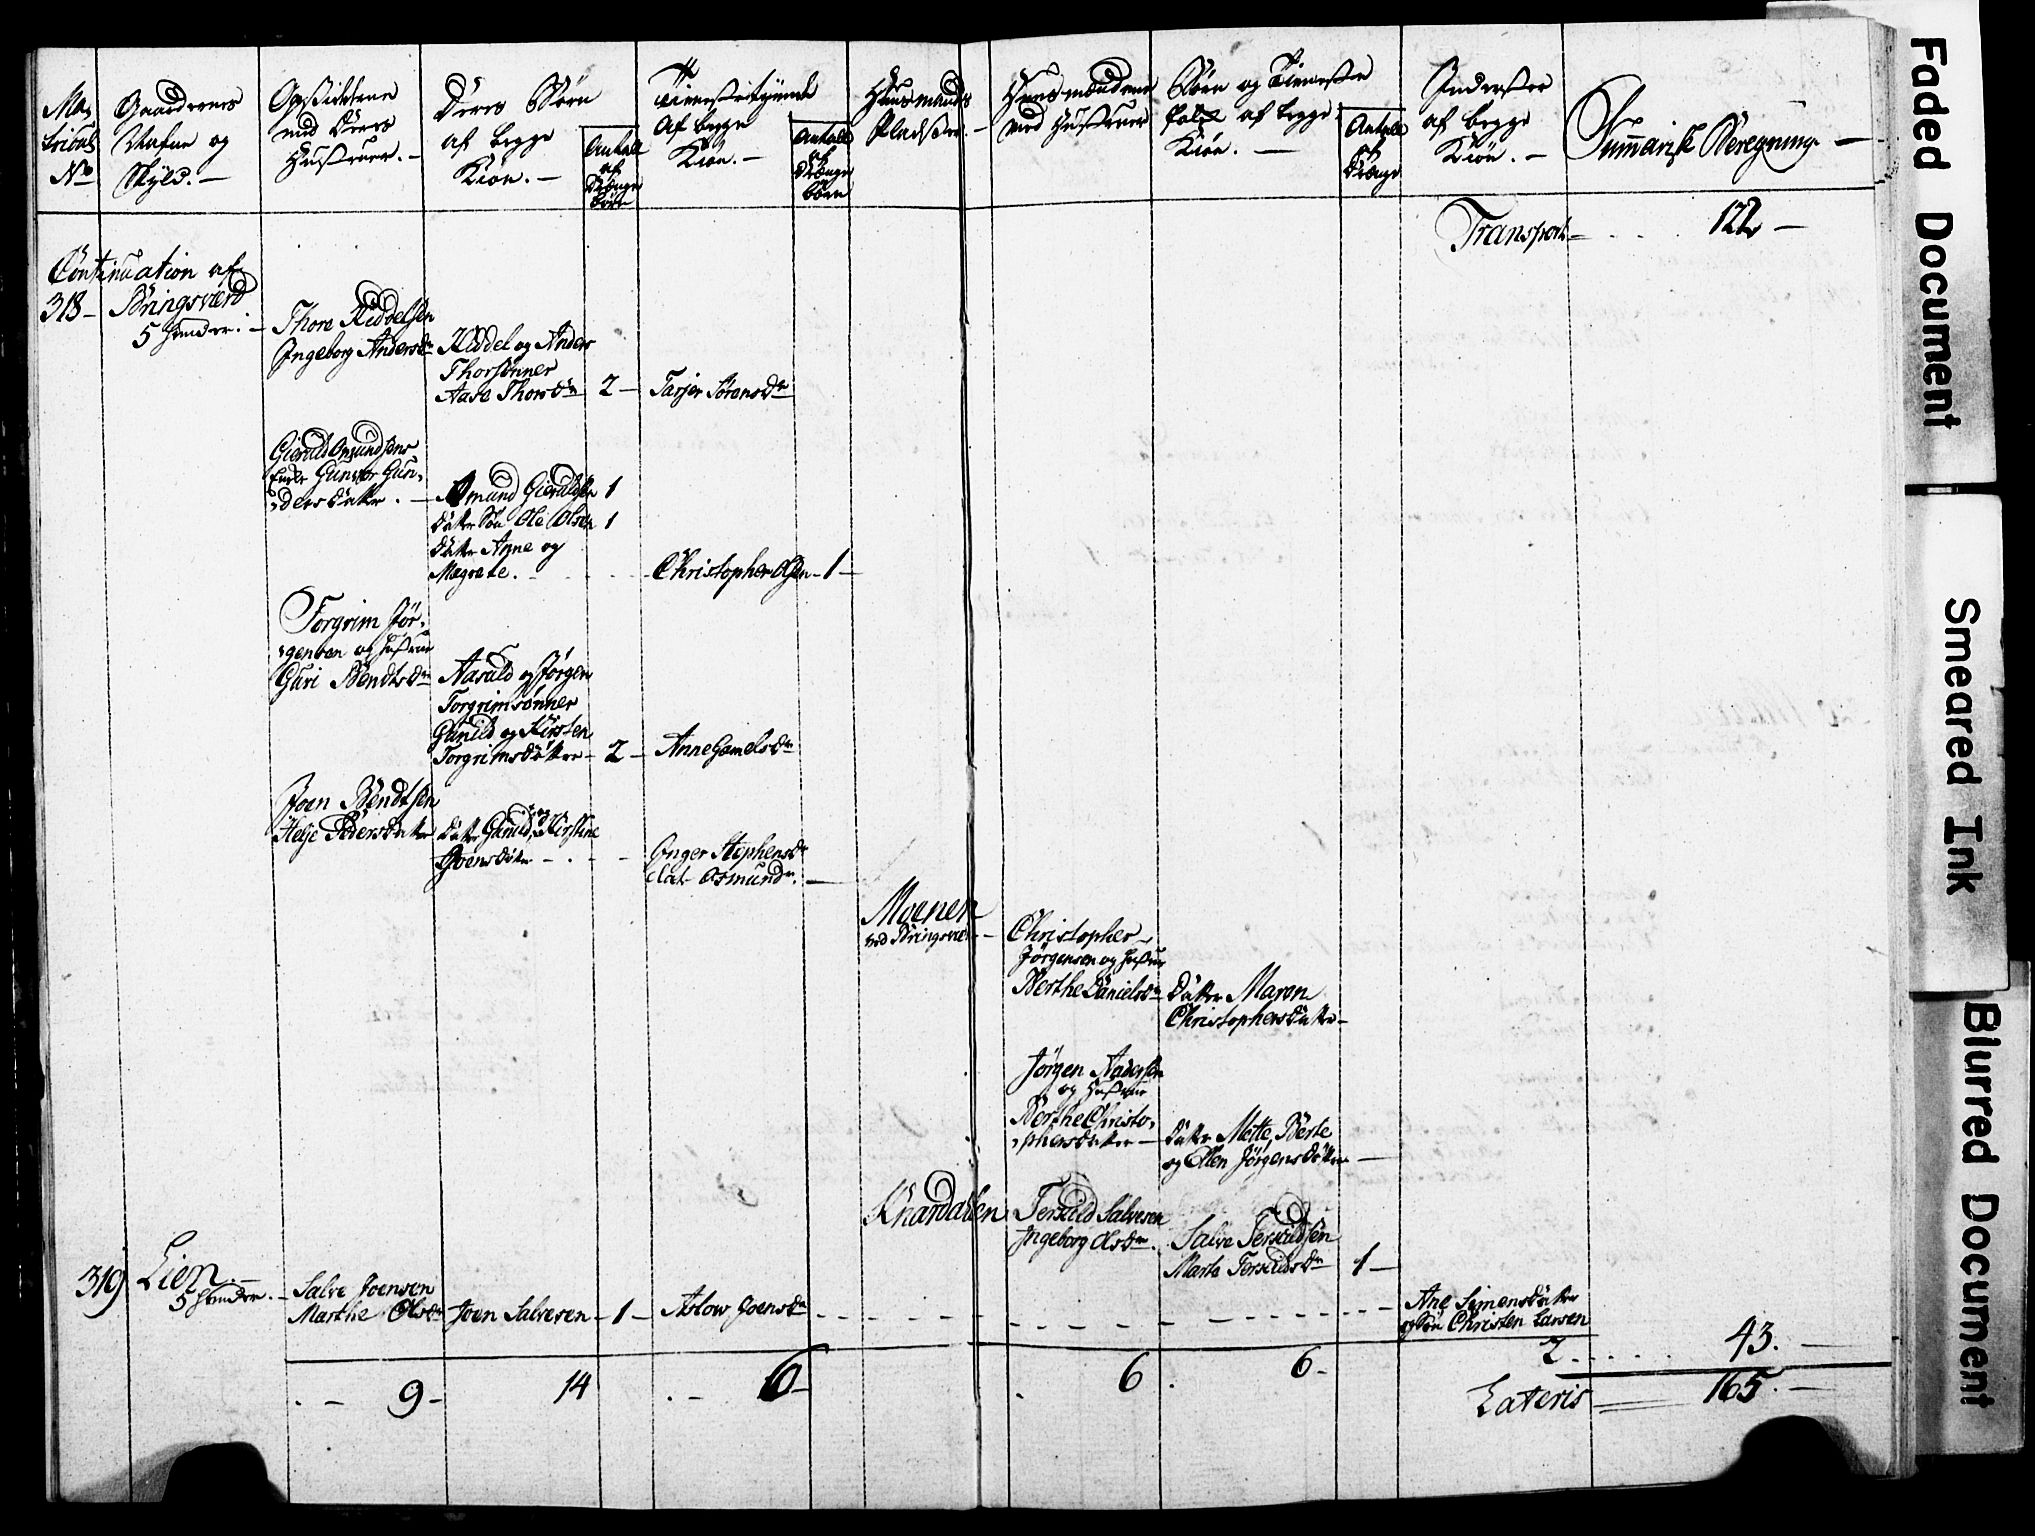 Ma,
tricul
No
Gaardenes
Nafne og
Skyld.—
Opsiddene
med deres
Hustruer.—
Deres Børn
af begge
Kiön.—
Antall
af
Drenge
börn
Tienestetyende
Af begge
Kiön.—
Antall
af
Drenge
börn
Huusmands
Pladser.—
Huusmændene
med Hustruer
Börn og Tieneste
folk af begge
Kiön.—
Antall
af
Drenge
Inderster
af begge
Kiön.—
Summarisk Beregning—
Transport— 122—
Continuation af
318— Bringsværd
5 hunder.—
Thore Kiddelsen
Ingeborg Andersdr
Kiddel og Anders
Thorsönner
Aase Thorsdr 2— Tarjer Sörensdr
Gieruld Omundsens
Enke Gunvor Gun,
dersdatter.—
Omund Gieruldsen 1
datter Sön Ole Olsen 1
döttre Anne og
Margrete. Christopher Olsen—1—
Torgrim Jör,
gensen og hustrue
Guri Bendtsdr
Aasuld og Jörgen
Torgrimsönner
Gunild og Kirsten
Torgrimsdöttre—2— Anne Gamelsdr
Joen Bendtsen
Helje Pedersdatter
döttre Gunild og Kirstine
Joensdöttre
Inger Stephensdr
Osmundr.
Moenen
ved Bringsvær—
Christopher
Jörgensen og hustrue
Berthe Danielsdr
datter Maren
Christophersdatter—
Jörgen Andersen
og hustrue
Berthe Christo,
phersdatter—
döttre Mette, Berte
og Ellen Jörgensdöttre—
Knardalen
Terkild Salvesen
Ingeborg Olsdr.
Salve Terkildsen
Marte Terkildsdr 1—
319 Lien.—
5 hunder.—
Salve Joensen
Marthe Olsdr Joen Salvesen—1— Aslow Joensdr
Ane Simensdatter
og Sön Christen Larsen
2. 43.—
9— 14 6— 6 6—
Lateris 165.—
Faded Document
Smeared Ink
Blurred Document